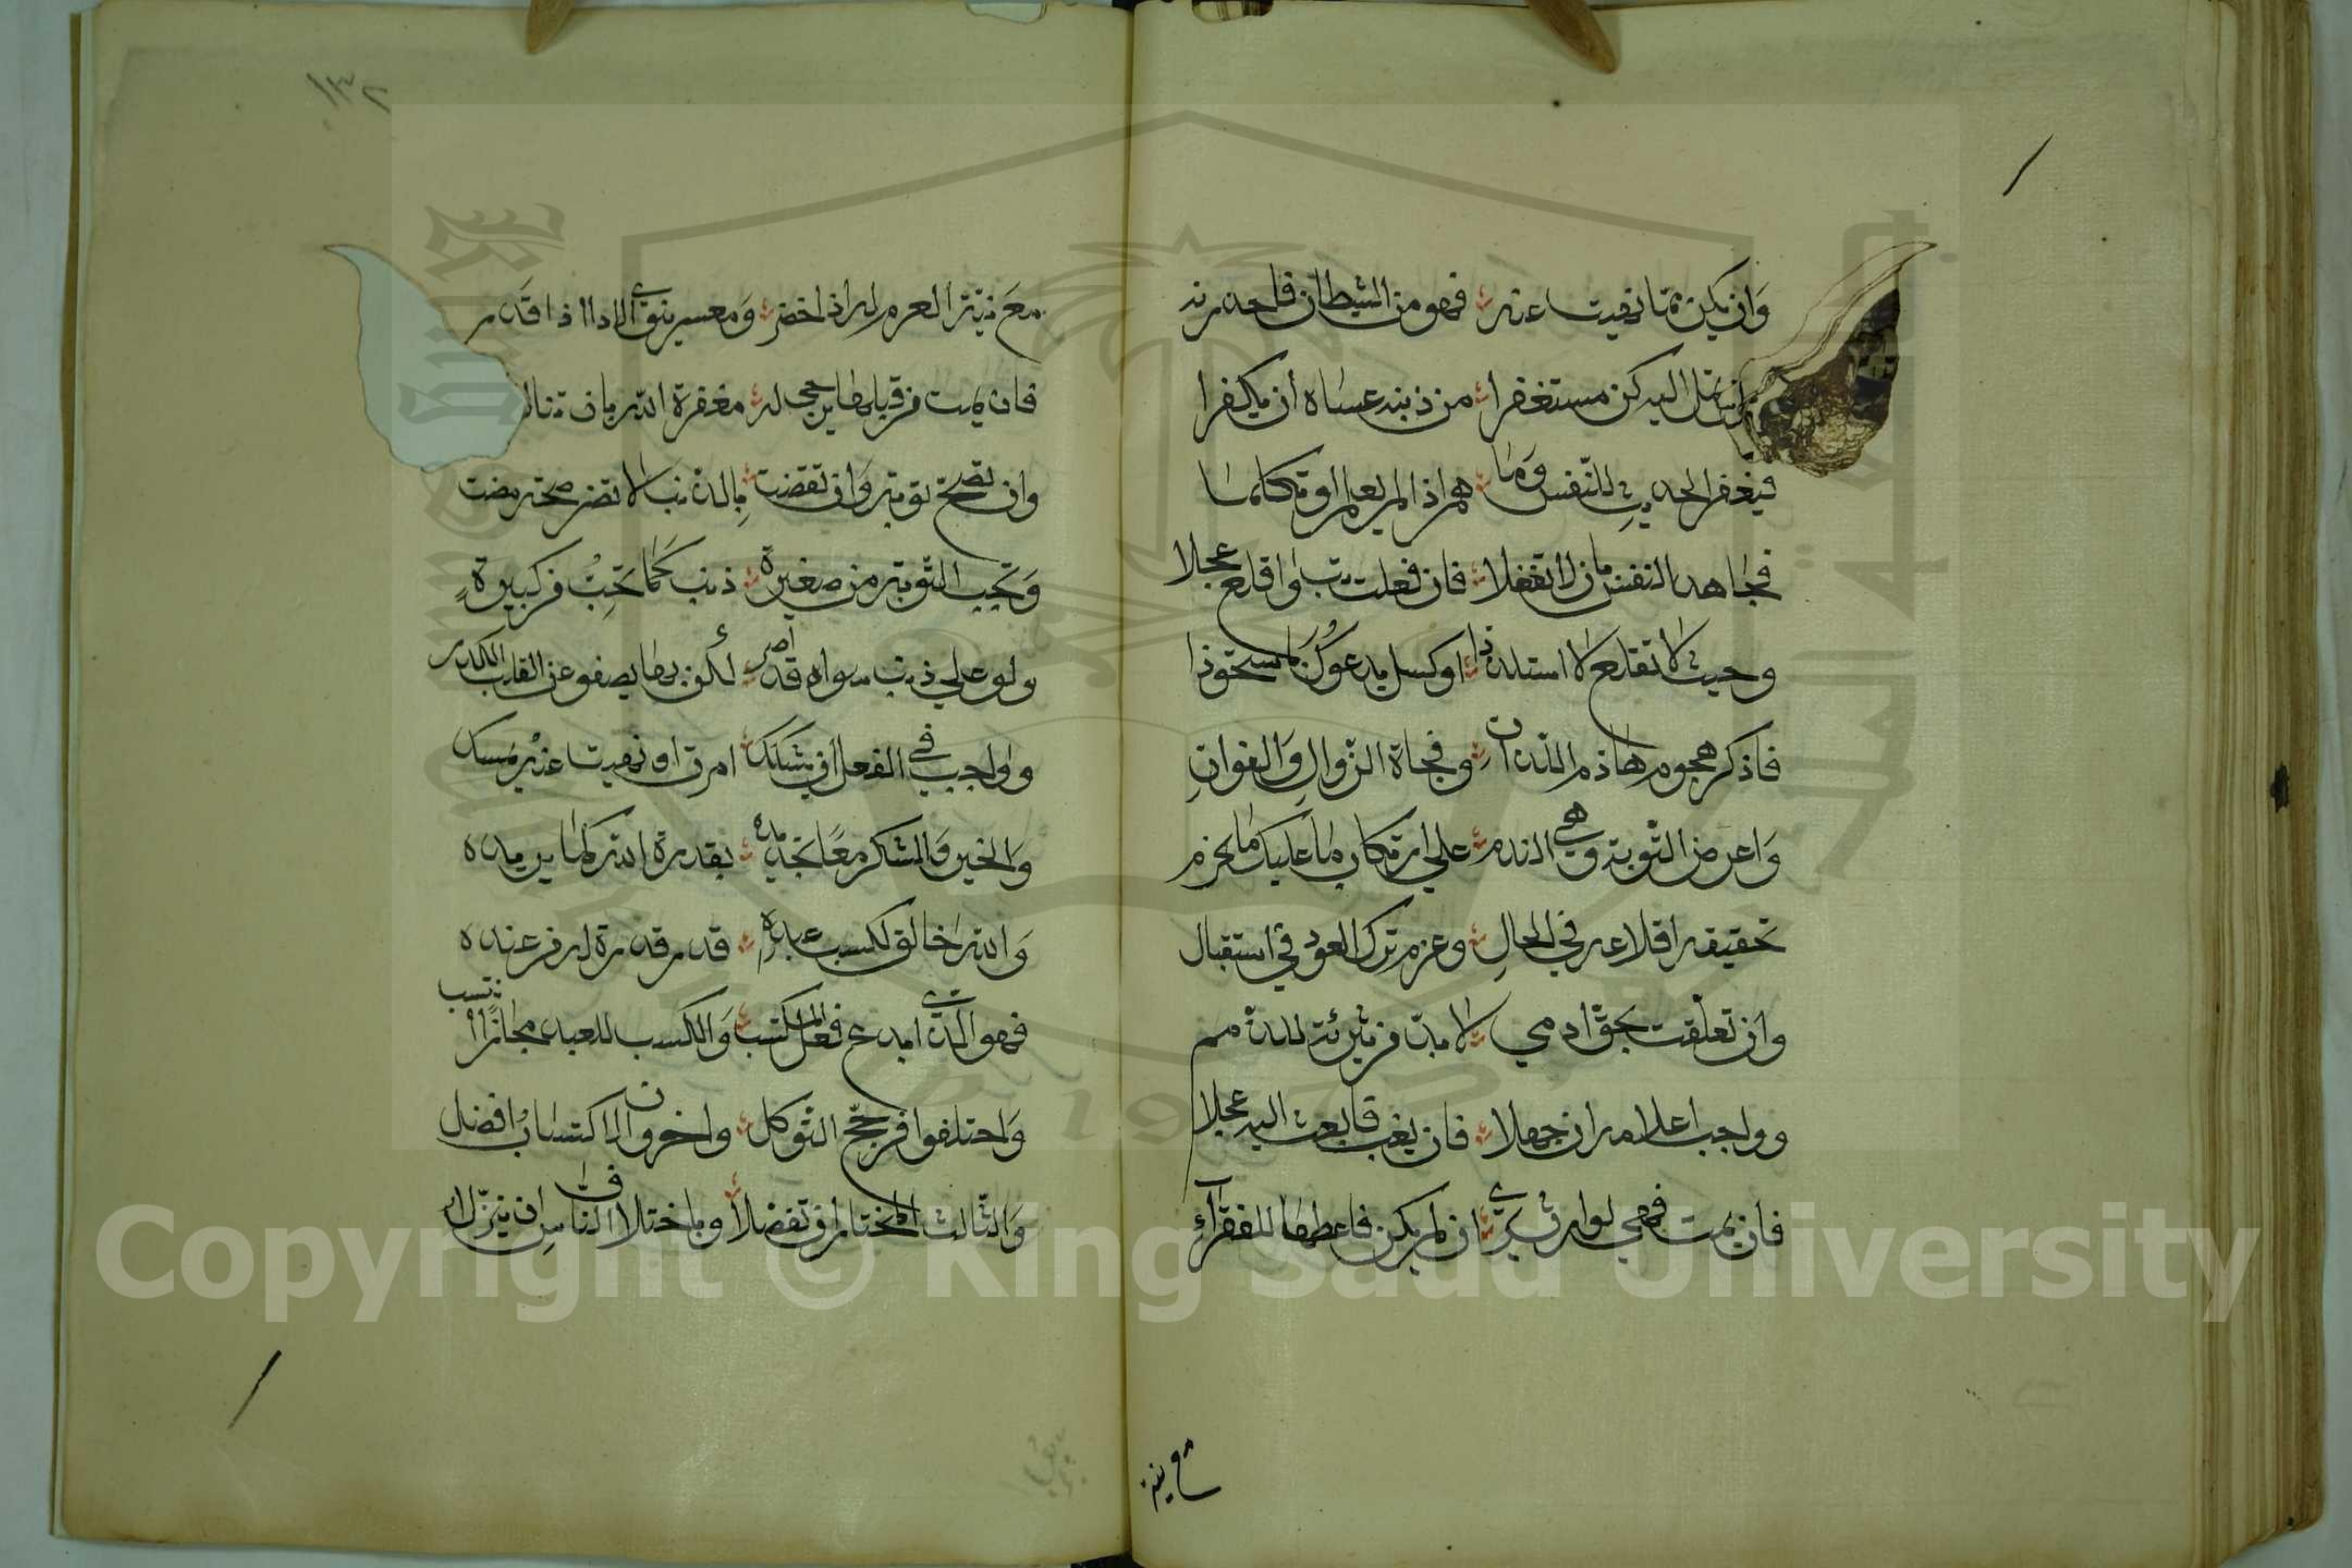 وَان يكن مما نهيت عنه فهو من الشيطان فاحذرنه
تمل اليه كن مستغفرا من ذنبه عساه أن يكفرا
فيغفر الحديث للنفس وَما هم اذا لم يعمل او تكلما
فجاهد النفس بان لا تغفلا فان فعلت تب واقلع عجلا
وحيث لا تقلع لاستلذاذ او كسل يدعوك باستحواذ
فاذكر هجوم هاذم اللذات وفجاة الزوال وَالفوات
وَاعرض التوبة وهي الندم على ارتكاب ما عليك يحرم
تحقيقه اقلاعه في الحالِ وعزم ترك العود في استقبال
وان تعلقت بحق ادمي لا بد من تبرئة للذمم
وواجب اعلامه ان جهلا فان يغب فابعث اليه عجلا
فان يمت فهي لوارث يرى ان لم يكن فاعطها للفقراءِ
مع نية
مع نية العزم له اذا حضر وَمعسر ينوي الادا اذا قدر
فان يمت من قبلها يرجى له مغفرة الله بان تناله
وان تصح توبة وَانتقضت بالذنب لا تضر صحة مضت
وَتجب التوبة من صغيرة ذنب كما تجب من كبيرةٍ
ولو على ذنب سواه قد أصر لكن بها يصفو عن القلب الكدر
وواجب في الفعل ان تشكك امرت او نهيت عنه تمسك
وَالخير وَالشر معا تجديده بقدرة الله كما يريده
وَالله خالق لكسب عبده قدر قدرة له من عنده
فهو الذي ابدع فعل المكتسب وَالكسب للعبد مجازًا ينتسب
وَاختلفوا فرجح التوكل واخرون الاكتساب افضل
وَالثالث المختار ان تفضلا وباختلاف الناس ان ينزلا
١٣٢
Copyright © King Saud University